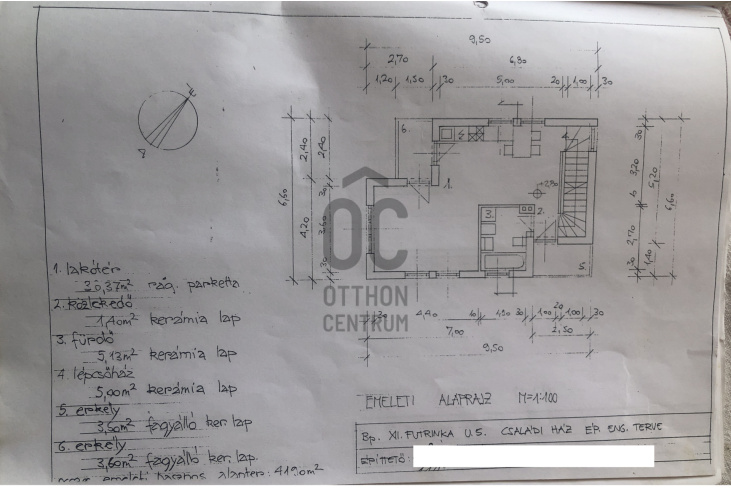 9,50
2,70 6,80
1,20 1,50 30 5,00 20 1,00 30
É
D
6,60
2,40 4,20
2,40 30 3,60 30
6.
1.
4.
+2,80
3.
2.
5.
30 3,20 2,70 30
5,20 1,40
6,60
30 4,40 10 1,80 30 1,00 20 1,00 30
7,00 2,50
9,50
OC
OTTHON
CENTRUM
1. lakótér
30,37m² rag. parketta
2. közlekedő
1,40m² kerámia lap
3. fürdő
5,13m² kerámia lap
4. lépcsőház
5,00m² kerámia lap
5. erkély
3,50m² fagyálló ker. lap
6. erkély
3,60m² fagyálló ker. lap.
emeleti hasznos alapter: 41,90m²
EMELETI ALAPRAJZ M=1:100
Bp. XII. FUTRINKA U. 5. CSALÁDI HÁZ ÉP. ENG. TERVE
ÉPÍTTETŐ: